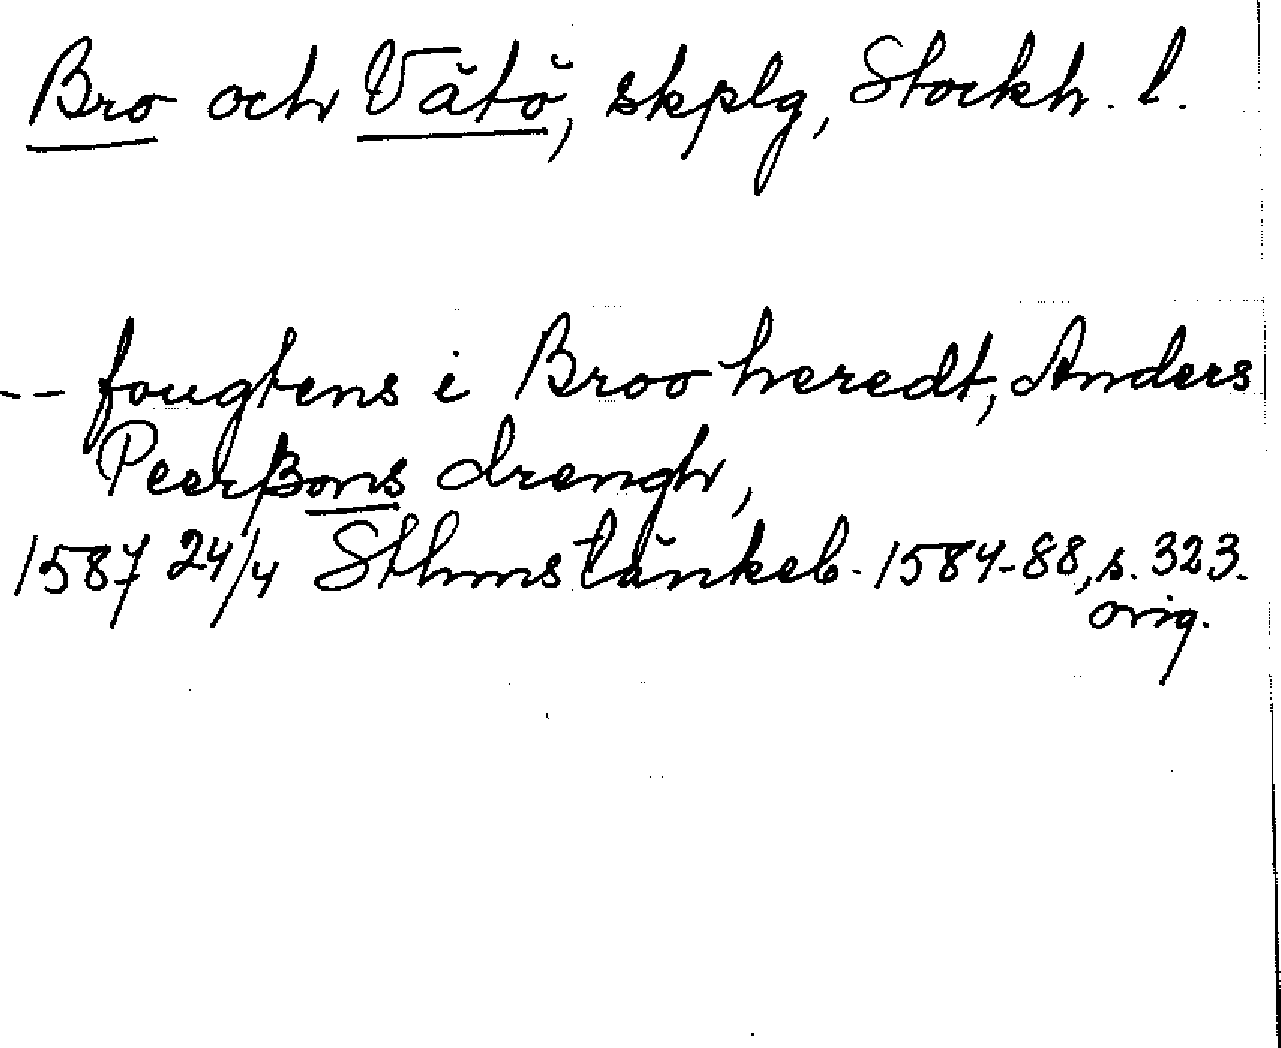 Bro och Vätö, skplg, Stockh. l.
-- fougtens i Broo heredt, Anders
Peerßons drengh,
1587 24/4 Sthms tänkeb. 1584-88, s. 323.
orig.